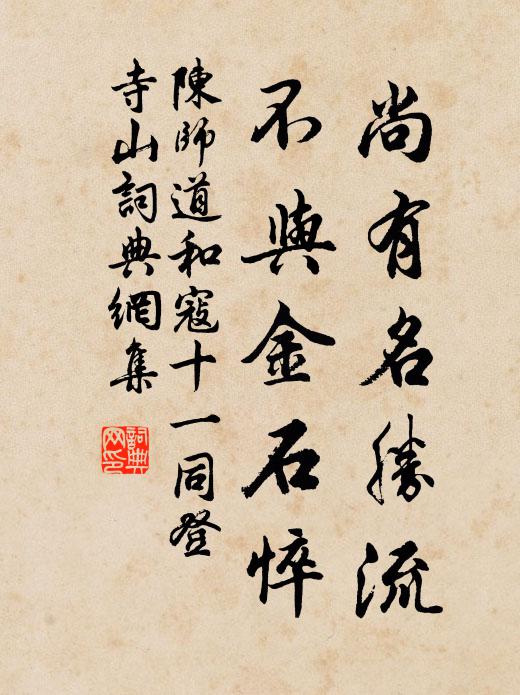 尚有名勝流
不與金石悴
陳師道和寇十一同登
寺山詞典網集
詞典
网印